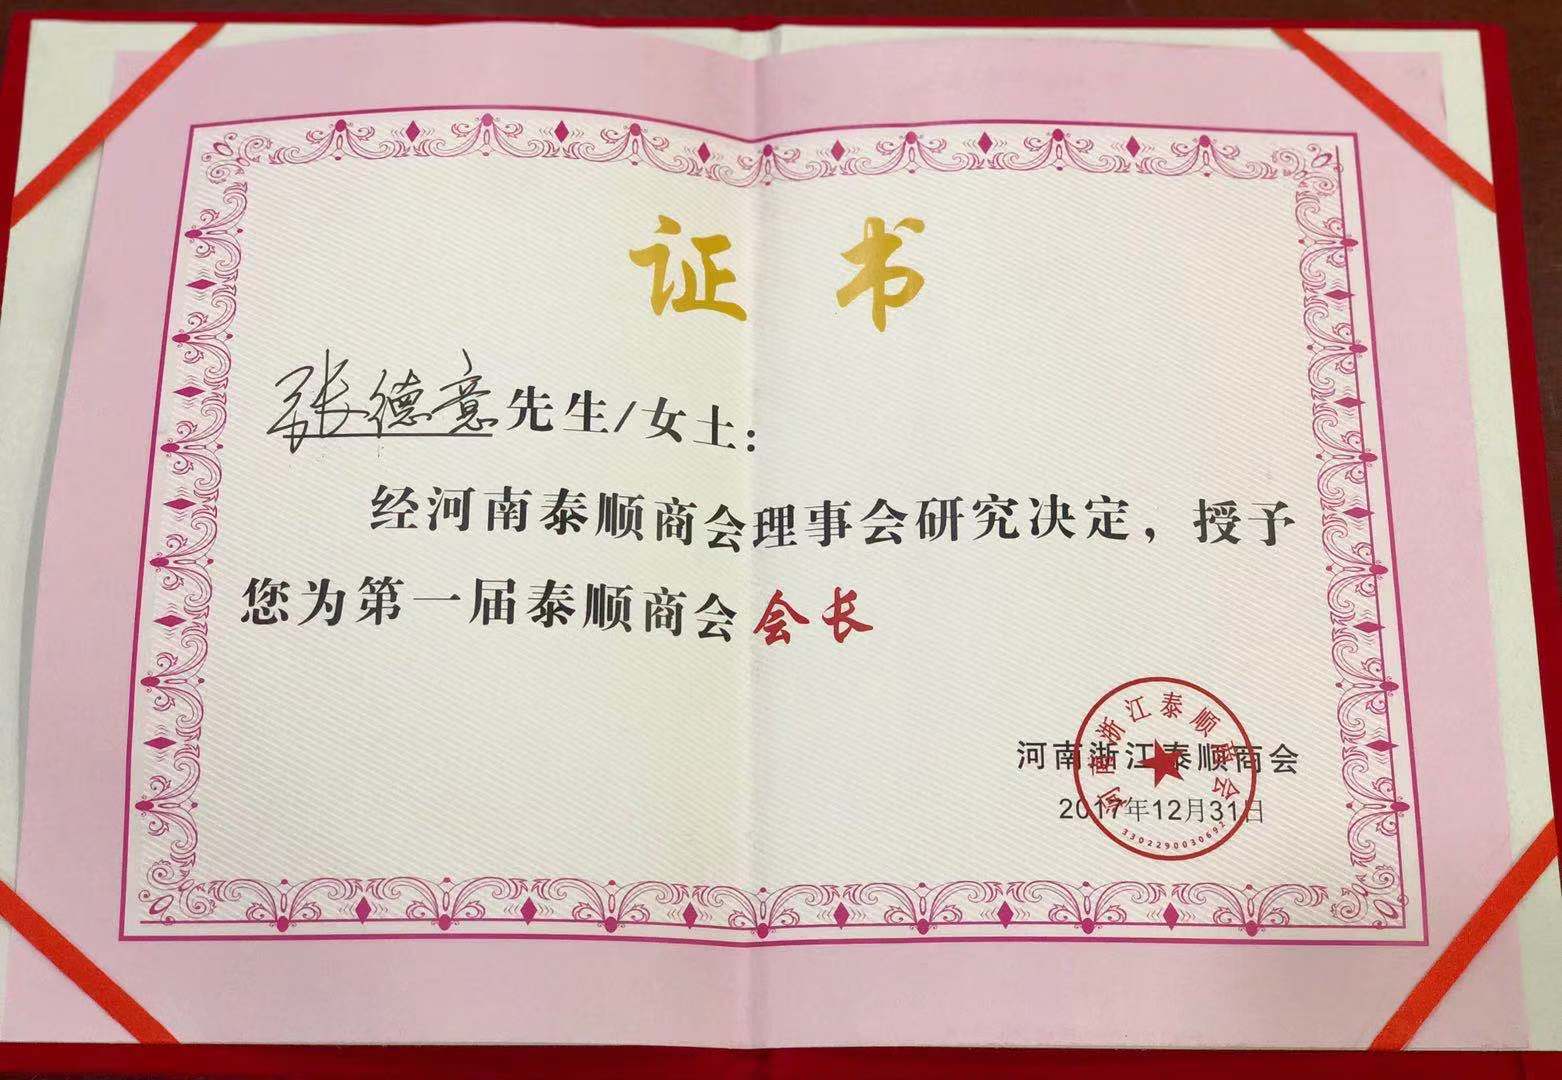 证书
张德意先生/女士：
经河南泰顺商会理事会研究决定，授予
您为第一届泰顺商会会长
河南浙江泰顺商会
2017年12月31日
河南浙江泰顺商会
3302290030692